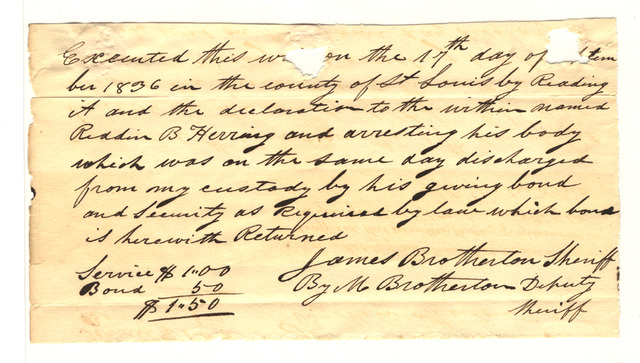 Executed this writ on the 17th day of Septem
ber 1836 in the county of St Louis by Reading
it and the declaration to the within named
Reddin B Herring and arresting his body
which was on the same day discharged
from my custody by his giving bond
and Security as Required by law which bond
is herewith Returned
James Brotherton Sheriff
By M Brotherton Deputy
Sheriff
Service $1.00
Bond 50
$1.50